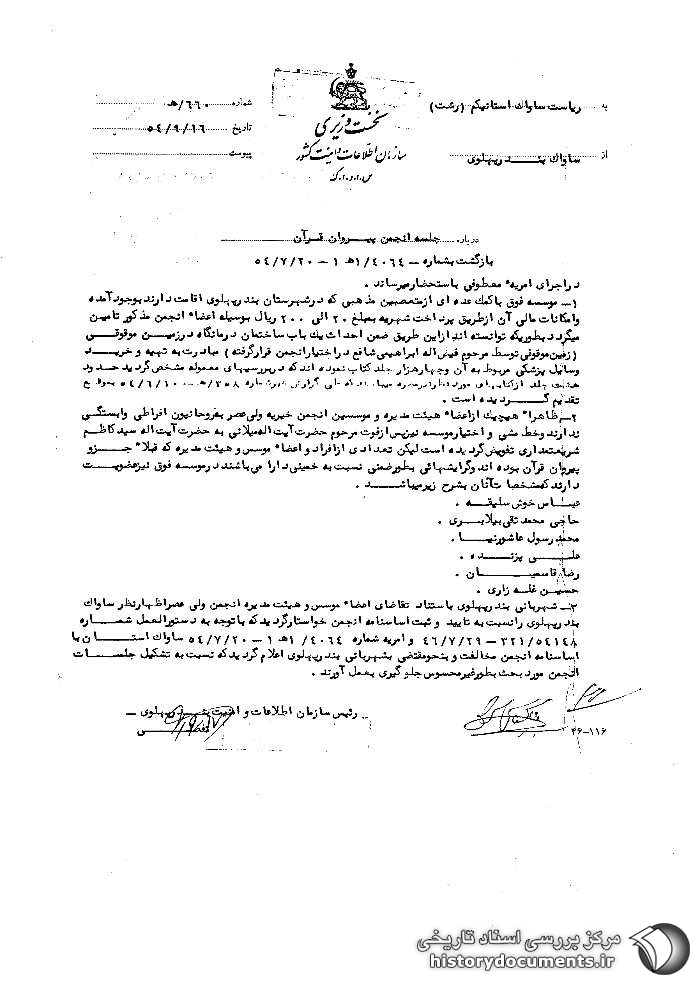 به ریاست ساواک استانیکم (رشت)
از ساواک بندرپهلوی
نخست وزیری
سازمان اطلاعات و امنیت کشور
س.ا.و.ا.ک
شماره ۶۶۰/هـ
تاریخ ۵۴/۹/۱۶
پیوست
درباره جلسه انجمن پیروان قرآن
بازگشت بشماره – ۴۰۶۴/۱هـ ۱ – ۵۴/۷/۲۰
دراجرای امریه معطوفی باستحضار میرساند .
۱– موسسه فوق باکمک عده ای ازمتعصبین مذهبی که درشهرستان بندرپهلوی اقامت دارند بوجود آمده
وامکانات مالی آن ازطریق پرداخت شهریه بمبلغ ۲۰ الی ۲۰۰ ریال بوسیله اعضاء انجمن مذکور تامین
میگردد بطوریکه توانسته اند ازاین طریق ضمن احداث یک باب ساختمان درمانگاه درزمین موقوفی
(زمین موقوفی توسط مرحوم فیض اله ابراهیمی شافع دراختیارانجمن قرارگرفته) مبادرت به تهیه و خرید
وسایل پزشکی مربوط به آن وچهارهزار جلد کتاب نموده اند که دربررسیهای معموله مشخص گردید حدود
هشت جلد ازکتابهای مورد نظر طی گزارش شماره ۳۵۸/هـ – ۵۴/۶/۱۰ بموقع
تقدیم گردیده است .
۲– ظاهراً هیچیک ازاعضاء هیئت مدیره و موسسین انجمن خیریه ولی عصر بفروحانیون افراطی وابستگی
ندارند وخط مشی و اختیارموسسه نیزپس ازفوت مرحوم حضرت آیت اله میلانی به حضرت آیت اله سیدکاظم
شریعتمداری تفویض گردیده است لیکن تعدادی ازافراد و اعضاء موسس و هیئت مدیره که قبلاً جزو
پیروان قرآن بوده اند وگرایشهائی بطورضمنی نسبت به خمینی دارا می باشند درموسسه فوق نیزعضویت
دارند که مشخصات آنان بشرح زیرمیباشد .
عباس خوش سلیقه .
حاجی محمد تقی بیلابری .
محمد رسول عاشورنیا .
علی پزنده .
رضا قاسمیان .
حسین غله زاری .
۳– شهربانی بندرپهلوی باستناد تقاضای اعضاء موسس و هیئت مدیره انجمن ولی عصر اظهارنظر ساواک
بندرپهلوی رانسبت به تایید و ثبت اساسنامه انجمن خواستارگردید که باتوجه به دستورالعمل شماره
۳۲۱/۵۴۱۴۸ – ۴۶/۷/۲۹ و امریه شماره ۴۰۶۴/۱هـ ۱ – ۵۴/۷/۲۰ ساواک استان با
اساسنامه انجمن مخالفت و بنحو مقتضی بشهربانی بندرپهلوی اعلام گردید که نسبت به تشکیل جلسات
انجمن مورد بحث بطورغیرمحسوس جلوگیری بعمل آورند .
رئیس سازمان اطلاعات و امنیت بندرپهلوی –
۴۶-۱۱۶
مرکز بررسی اسناد تاریخی
historydocuments.ir